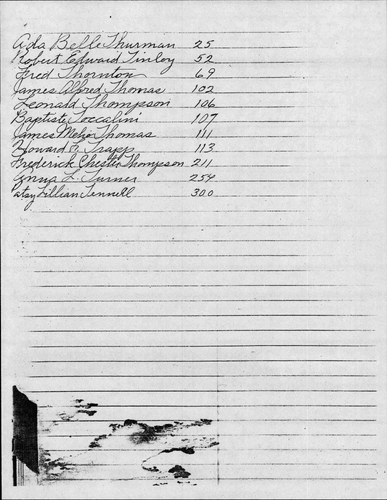 Ada Belle Thurman 25
Robert Edward Tinley 52
Fred Thornton 69
James Alfred Thomas 102
Leonard Thompson 106
Baptiste Toccalini 107
James Thomas 111
Howard Trapp 113
Frederick Chester Thompson 211
Anna L. Turner 254
Lillian Tennell 300